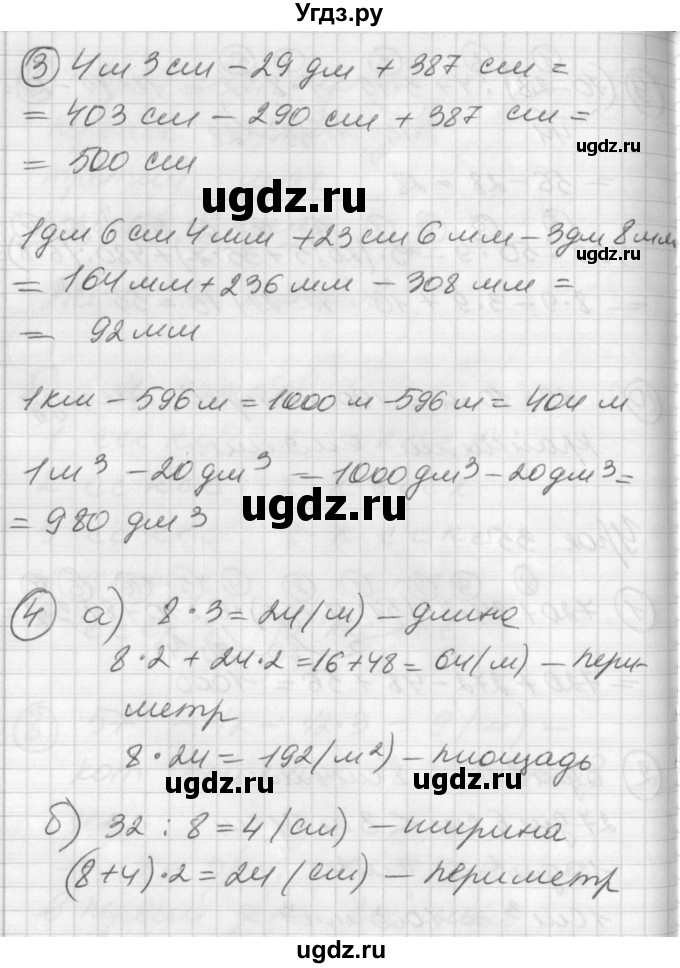 Угдз.ру
③ 4м 3см − 29 дм + 387 см =
= 403 см − 290 см + 387 см =
ugdz.ru
= 500 см
ugdz.ru
1дм 6см 4мм + 23см 6мм − 3дм 8мм
ugdz.ru
= 164мм + 236мм − 308 мм =
= 92мм
1км − 596м = 1000м - 596м = 404 м
1м³ − 20дм³ = 1000дм³ − 20дм³ =
ugdz.ru
= 980 дм³
④ а) 8 · 3 = 24 (м) − длина
8 · 2 + 24 · 2 = 16 + 48 = 64 (м) − пери-
метр
8 · 24 = 192 (м²) − площадь
ugdz.ru
ugdz.ru
б) 32 : 8 = 4 (см) − ширина
(8+4) · 2 = 24 (см) − периметр
ugdz.ru